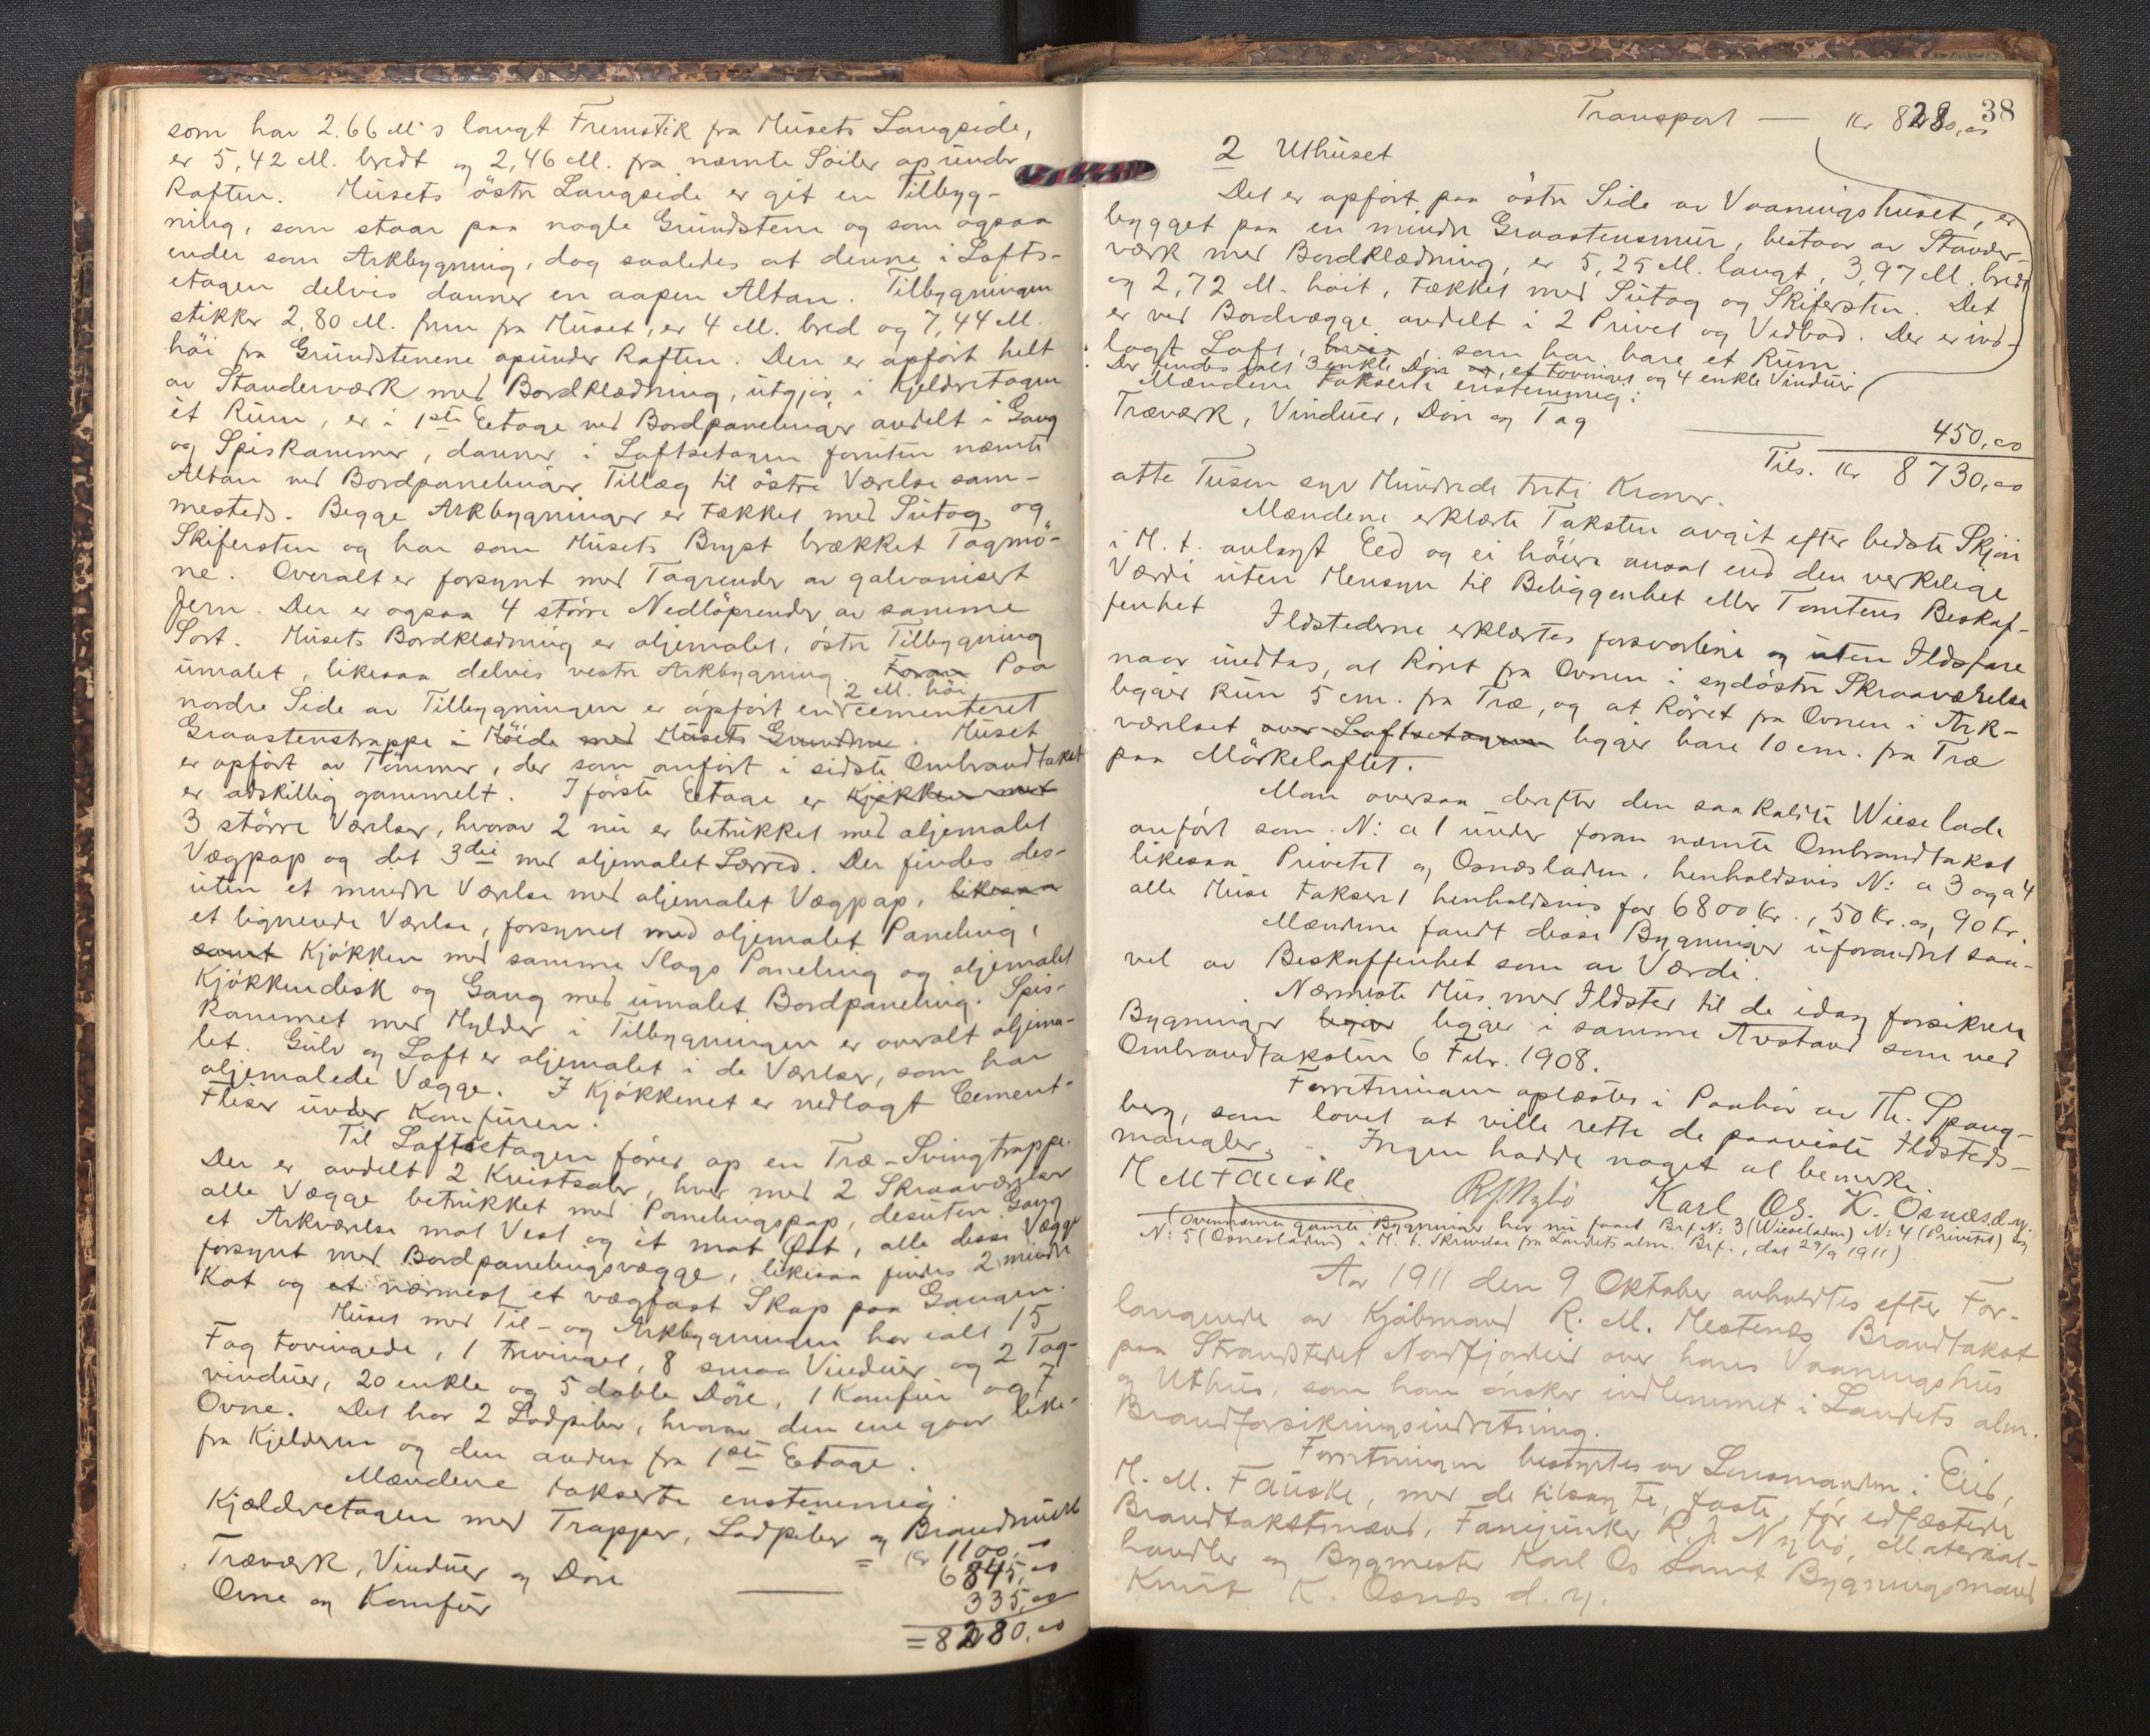 som har 2.66 M's langt Fremstik fra Husets Langside,
er 5,42 M. bredt og 2,46 M. fra nævnte Söiler op under
Raften. Husets östre Langside er git en Tilbyg-
ning, som staar paa nogle Grundstene og som ogsaa
ender som Arkbygning, dog saaledes at denne i Lofts-
etagen delvis danner en aapen Altan. Tilbygningen
stikker 2,80 M. frem fra Huset, er 4 M. bred og 7,44 M.
höi fra Grundstenene opunder Raften. Den er opfört helt
av Standerværk med Bordklædning, utgjör i Kjelderetagen
ét Rum, er i 1ste Eetage ved Bordpanelinger avdelt i Gang
og Spiskammer, danner i Loftsetagen foruten nævnte
Altan ved Bordpanelinger Tillæg til östre Værelse sam-
mesteds. Begge Arkbygninger er tækket med Sutag og
Skifersten og har som Husets Bryst brækket Tagmö-
ne. Overalt er forsynt med Tagrender av galvanisert
Jern. Der er ogsaa 4 större Nedlöpsrender av samme
Sort. Husets Bordklædning er oljemalet, östre Tilbygning
umalet, likesaa delvis vestre Arkbygning. Foran Paa
nordre Side av Tilbygningen er opfört en 2 M. höi cementeret
Graastenstrappe i Höide med Husets Grundmur. Huset
er opfört av Tömmer, der som anfört i sidste Ombrandtakst
er adskillig gammelt. I förste Etage er Kjökken med
3 större Værelser, hvorav 2 nu er betrukket med oljemalet
Vægpap og det 3die med oljemalet Lærred. Der findes des-
uten et mindre Værelse med oljemalet Vægpap, likesaa
et lignende Værelse, forsynet med oljemalet Paneling,
samt Kjökken med samme Slags Paneling og oljemalet
Kjökkendisk og Gang med umalet Bordpaneling. Spis-
kammet med Hylder i Tilbygningen er overalt oljema-
let. Gulv og Loft er oljemalet i de Værelser, som har
oljemalede Vægge. I Kjökkenet er nedlagt Cement-
Fliser under Komfuren.
Til Loftsetagen förer op en Træ-Svingtrappe.
Der er avdelt 2 Kvistsaler, hver med 2 Skraaværelser
alle Vægge betrukket med Panelingspap, desuten Gang
et Arkværelse mot Vest og et mot Öst, alle disse Vægge
forsynt med Bordpanelingsvægge, likesaa findes 2 mindre
Kot og et nærmest et vægfast Skap paa Gangen.
Huset med Til- og Arkbygningen har ialt 15
Fag tovingede, 1 trevinget, 8 smaa Vinduer og 2 Tag-
vinduer, 20 enkle og 5 doble Döre, 1 Komfur og 7
Ovne. Det har 2 Lodpiber, hvorav den ene gaar like
fra Kjelderen og den anden fra 1ste Eetage.
Mændene takserte enstemmig:
Kjælderetagen med Trapper, Lodpiber og Brandmure
= Kr 1100,00
Træværk, Vinduer og Döre 6845,00
Ovne og Komfur 335,00
= 8280,00
38
Transport — Kr 8280,00
2 Uthuset
Det er opfört paa östre Side av Vaaningshuset, er
bygget paa en mindre Graastensmur, bestaar av Stander-
værk med Bordklædning, er 5,25 M. langt, 3,97 M. bredt
og 2,72 M. höit, tækket med Sutag og Skifersten. Det
er ved Bordvægge avdelt i 2 Privet og Vedbod. Der er ind-
lagt Loft, som har bare et Rum
Der findes ialt 3 enkle Döre og, et tovinget og 4 enkle Vinduer
Mændene takserte enstemmig:
Træværk, Vinduer, Döre og Tag
450,00
Tils. Kr 8730,00
otte Tusen syv Hundrede treti Kroner.
Mændene erklærte Taksten avgit efter bedste Skjön
i H. t. avlagt Eed og ei höiere ansat end den verkelige
Værdi uten Hensyn til Beliggenhet eller Tomtens Beskaf-
fenhet Ildstederne erklærtes forsvarlige og uten Ildsfare
naar undtas, at Röret fra Ovnen i sydöstre Skraaværelse
ligger kun 5 cm. fra Træ, og at Röret fra Ovnen i Ark-
værelset over Loftsetagen ligger bare 10 cm. fra Træ
paa Mörkeloftet.
Man oversaa derefter den saakaldte Wieselade
anfört som N: a 1 under foran nævnte Ombrandtakst
likesaa Privetet og Osnæsladen, henholdsvis N: a 3 og a 4
alle Huse taksert henholdsvis for 6800 Kr., 50 Kr. og 90 Kr.
Mændene fandt disse Bygninger uforandret saa-
vel av Beskaffenhet som av Værdi.
Nærmeste Hus med Ildsted til de idag forsikrede
Bygninger ligger ligger i samme Avstand som ved
Ombrandtaksten 6 Febr. 1908.
Forretningen oplæstes i Paahör av Th. Spang-
berg, som lovet at ville rette de paaviste Ildsteds-
mangler. - Ingen hadde noget at bemerke.
H M Fauske RJNybö Karl Os. K. Osnæs d.y.
(Ovennævnte gamle Bygninger har nu faaet Brf. N: 3 (Wieseladen) N: 4 (Privetet) og
N: 5 (Osnesladen) i H. t. Skrivelse fra Landets alm. Brf., dat 29/9 1911)
Aar 1911 den 9 Oktober avholdtes efter For-
langende av Kjöbmand R. M. Hestenæs Brandtakst
paa Strandstedet Nordfjordeid over hans Vaaningshus
og Uthus, som han önsker indlemmet i Landets alm.
Brandforsikringsindretning.
Forretningen bestyrtes av Lensmanden i Eid,
H. M. Fauske, med de tilsagte, faste, för edfæstede
Brandtakstmænd, Fanejunker R. J. Nybö, Material-
handler og Bygmester Karl Os samt Bygningsmand
Knut K. Osnæs d. y.